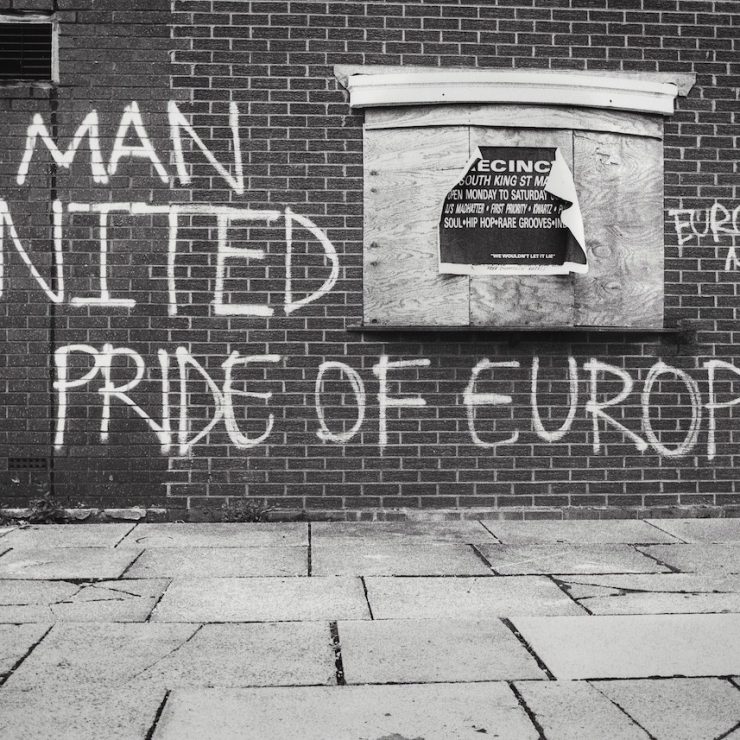 MAN
UNITED
PRIDE OF EUROP
ECINC
SOUTH KING ST MA
OPEN MONDAY TO SATURDAY
DJ'S MADHATTER • FIRST PRIORITY • KWARTZ •
SOUL•HIP HOP•RARE GROOVES•IN
"WE WOULDN'T LET IT LIE"
EURO